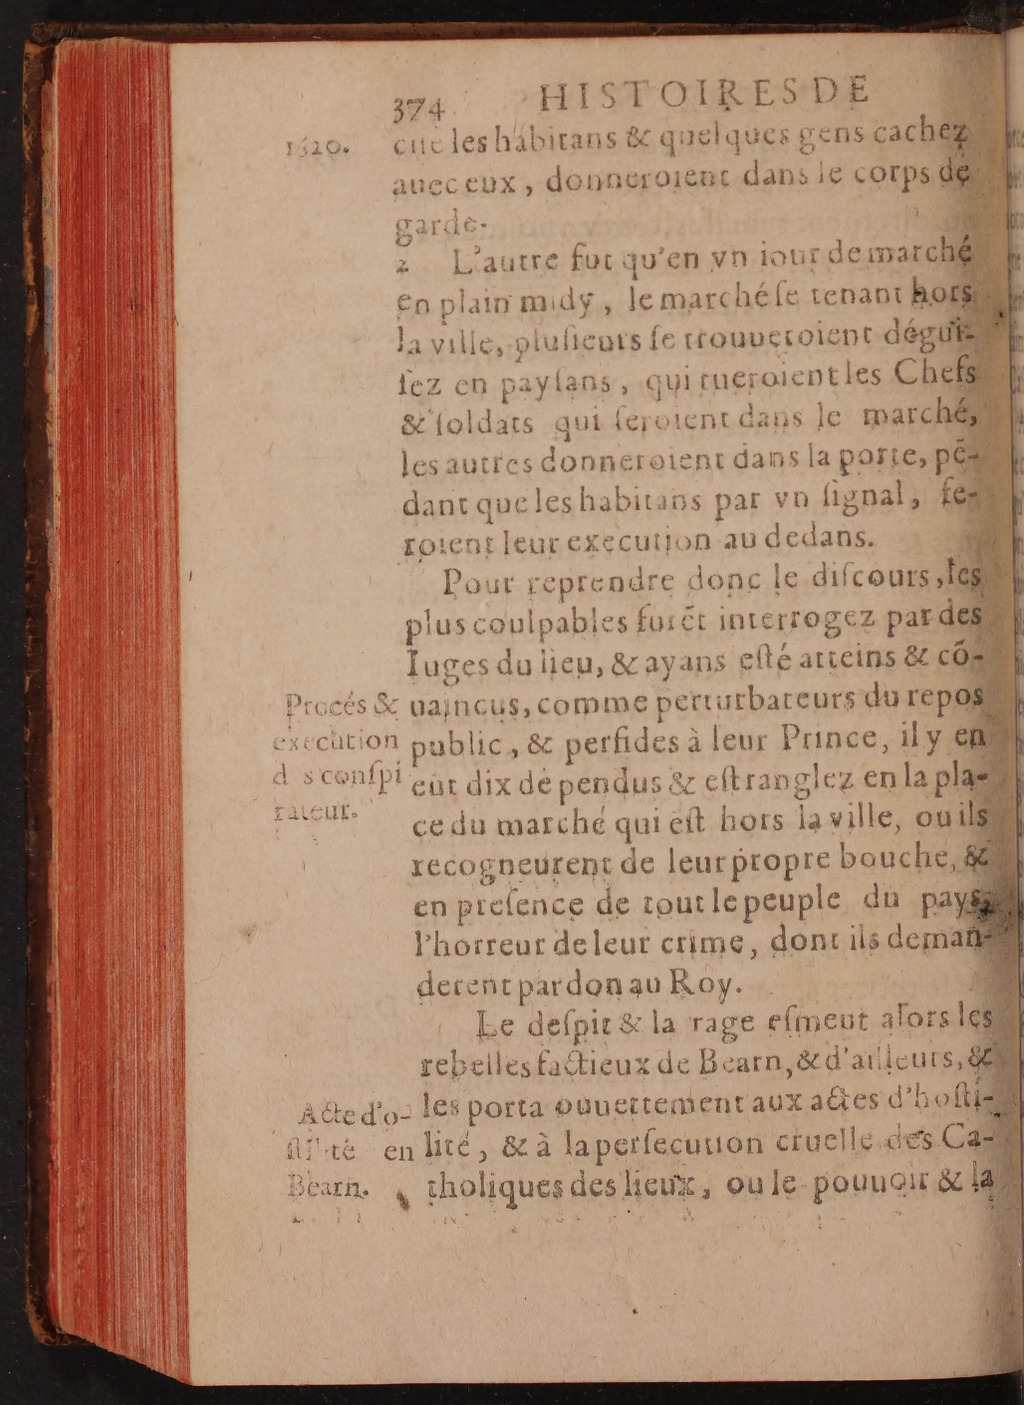 374 HISTOIRES DE
1620.
cue les habitans & quelques gens cachez
auec eux, donneroient dans le corps de
garde.
2 L'autre fut qu'en vn iour de marché
en plain midy, le marché ſe tenant hors
la ville, pluſieurs ſe trouueroient dégui-
ſez en payſans, qui tueroient les Chefs
& ſoldats qui ſeroient dans le marché,
les autres donneroient dans la porte, pē-
dant que les habitans par vn ſignal, fe-
roient leur execution au dedans.
Pour reprendre donc le diſcours, les
plus coulpables furēt interrogez par des
Iuges du lieu, & ayans eſté atteins & cō-
uaincus, comme perturbateurs du repos
public, & perfides à leur Prince, il y en
eut dix de pendus & eſtranglez en la pla-
ce du marché qui eſt hors la ville, ou ils
recogneurent de leur propre bouche, &
en preſence de tout le peuple du pays,
l'horreur de leur crime, dont ils deman-
derent pardon au Roy.
Procés &
execution
d s conſpi
rateur.
Le deſpit & la rage eſmeut alors les
rebelles factieux de Bearn, & d'ailleurs, &
les porta ouuertement aux actes d'hoſti-
lité, & à la perſecution cruelle des Ca-
tholiques des lieux, ou le pouuoir & la
Acte d'o-
ſtilité en
Bearn.